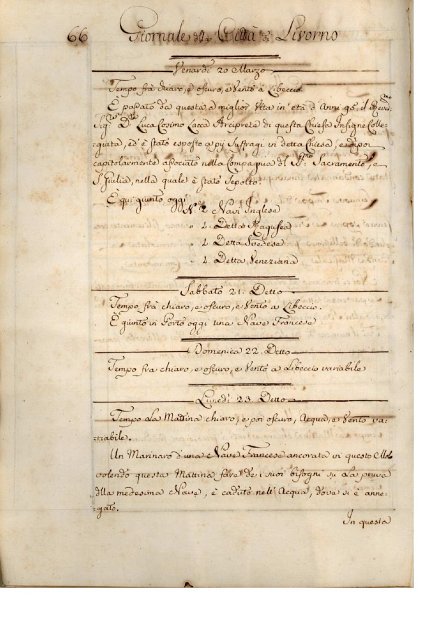 66 Giornale di Città di Livorno
Venardì 20 Marzo
Tempo frà chiaro, e oscuro, e Vento à Libeccio
È passato da questa, a miglior Vita in età d'Anni 96, il
Sig.re D.re Luca Cosimo Arciprete di questa Chiesa Insigne Colle-
giata, ed è stato esposto a' più Suffragi in detta Chiesa, e di poi
capitolarmente associato nella Compagnia del SS. Sacramento, e
S. Giulia, nella quale è stato Sepolto.
E qui giunto oggi
N.o 2. Navi Inglese
1. Detta Ragusea
1. Detta Svedese
1. Detta Veneziana
Sabbato 21. Detto
Tempo frà chiaro, e oscuro, e Vento a Libeccio.
È giunto in Porto oggi una Nave Francese
Domenica 22. Detto
Tempo fra chiaro, e oscuro, e Vento a Libeccio variabile
Lunedì 23. Detto
Tempo la Mattina chiaro, e poi oscuro, Acqua, e Vento va-
riabile.
Un Marinaro d'una Nave Francese ancorata in questo Molo
volendo questa Mattina fare de i suoi bisogni su la prua
d'lla medesima Nave, è caduto nell'Acqua, dove si è anne-
gato.
In questa